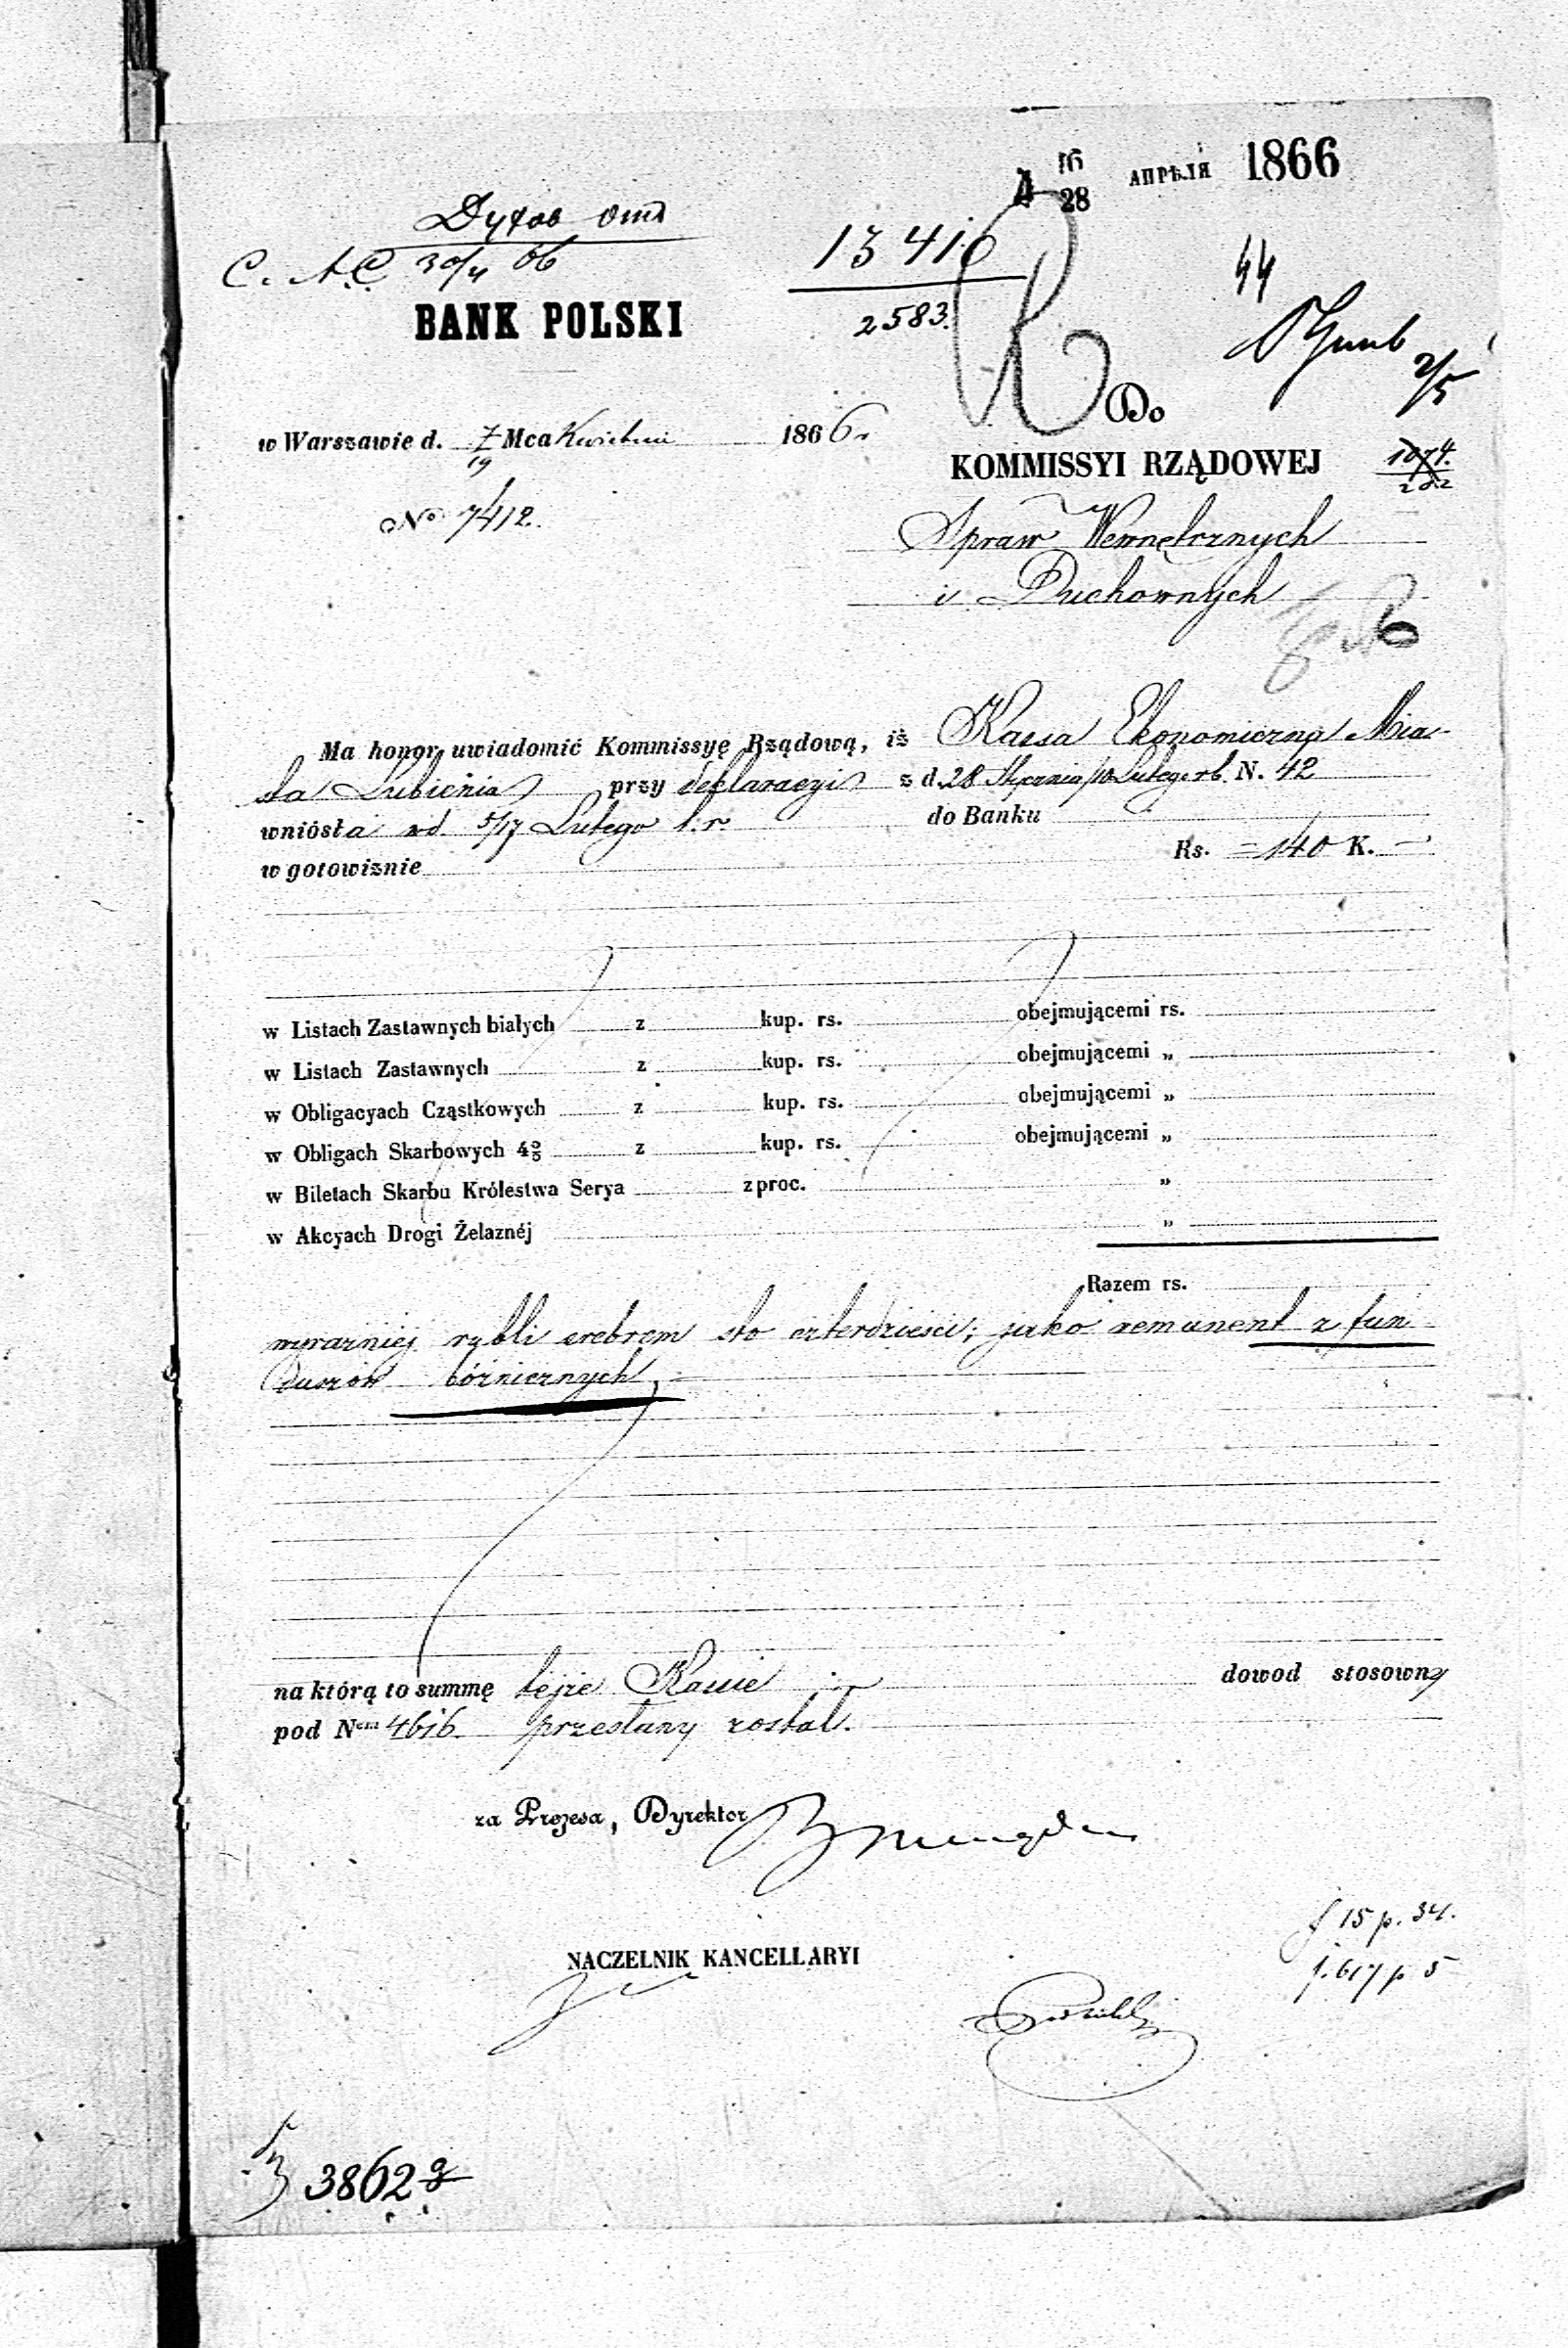 16/28 АПРѢЛЯ 1866
Духов отд
13410
44
С. А. С. 30/4 66
2583.
BANK POLSKI
2/5
Do
w Warszawie d. 7/19 Mca Kwietnia 1866 r.
KOMMISSYI RZĄDOWEJ
No 7412.
Spraw Wewnętrznych
i Duchownych
Ma honor uwiadomić Kommissyę Rządową, iż Kassa Ekonomiczna Mia-
sta Lubienia przy deklaracyi z d. 28 Stycznia/10 Lutego r.b. N. 42
wniósła wd. 5/17 Lutego b.r. do Banku
w gotowiznie Rs. =140 K. —
w Listach Zastawnych białych z kup. rs. obejmującemi rs.
w Listach Zastawnych z kup. rs. obejmującemi „
w Obligacyach Cząstkowych z kup. rs. obejmującemi „
w Obligach Skarbowych 4% z kup. rs. obejmującemi „
w Biletach Skarbu Królestwa Serya z proc. „
w Akcyach Drogi Żelaznéj „
Razem rs.
wyrazniej rubli srebrem sto czterdzieści; jako remanent z fun-
duszów bóżnicznych,
na którą to summę tejże Kassie dowod stosowny
pod Nem 4616. przesłany został.
za Prezesa, Dyrektor
f 15 p. 34.
NACZELNIK KANCELLARYI
f. 617 p 5
38628